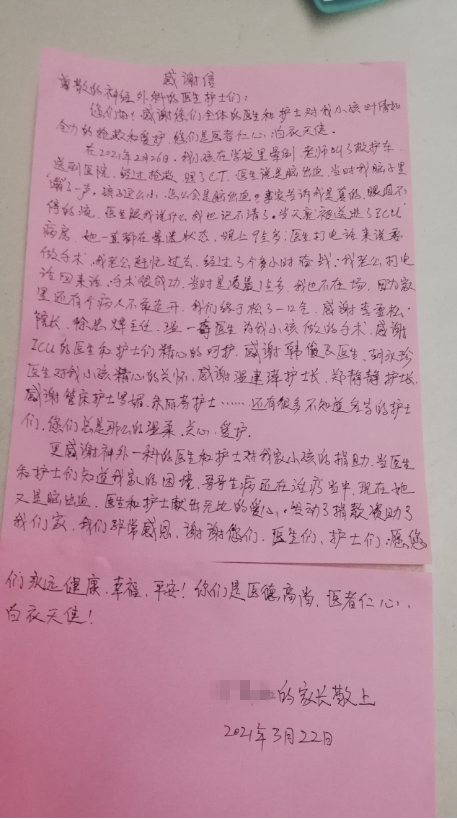 感谢信
尊敬的神经外科的医生护士们：
你们好！感谢你们全体的医生和护士对我小孩叶倩
全力的抢救和爱护，你们是医者仁心，白衣天使。
在2021年2月26日，我小孩在学校晕倒，老师叫了救护车
送到医院，经过抢救，照了CT，医生说是脑出血，当时我脑子里
"嗡"了一声，孩子这么小，怎么会是脑出血。事实告诉我是真的，眼泪不
停的流，医生跟我说什么我也记不清了。当天就被送进了ICU
病房，她一直都在昏迷状态，晚上9点多，医生打电话来说要
做手术，我老公赶忙过去，经过3个多小时的，我老公打电
话回来说，手术很成功，当时是凌晨1点多，我也不在场，因为家
里还有个病人不能走开，我们终于松了一口气，感谢李雪松
院长，徐忠烨主任，温一医生为我小孩做的手术，感谢
ICU的医生和护士们精心的呵护，感谢韩俊医生，胡永珍
医生对我小孩精心的关怀，感谢温建萍护士长，郑静静护士长，
感谢管床护士罗娟，朱丽芳护士……还有很多不知道名字的护士
们，你们总是那么的温柔，关心，爱护。
更感谢神外一科的医生和护士对我家小孩的捐助，当医生
和护士们知道我家的困境，哥哥生病还在治疗当中，现在她
又是脑出血，医生和护士献出无比的爱心，发动了捐款援助了
我们家，我们非常感恩，谢谢您们，医生们，护士们，愿您
们永远健康，幸福，平安！你们是医德高尚，医者仁心，
白衣天使！
的家长敬上
2021年3月22日